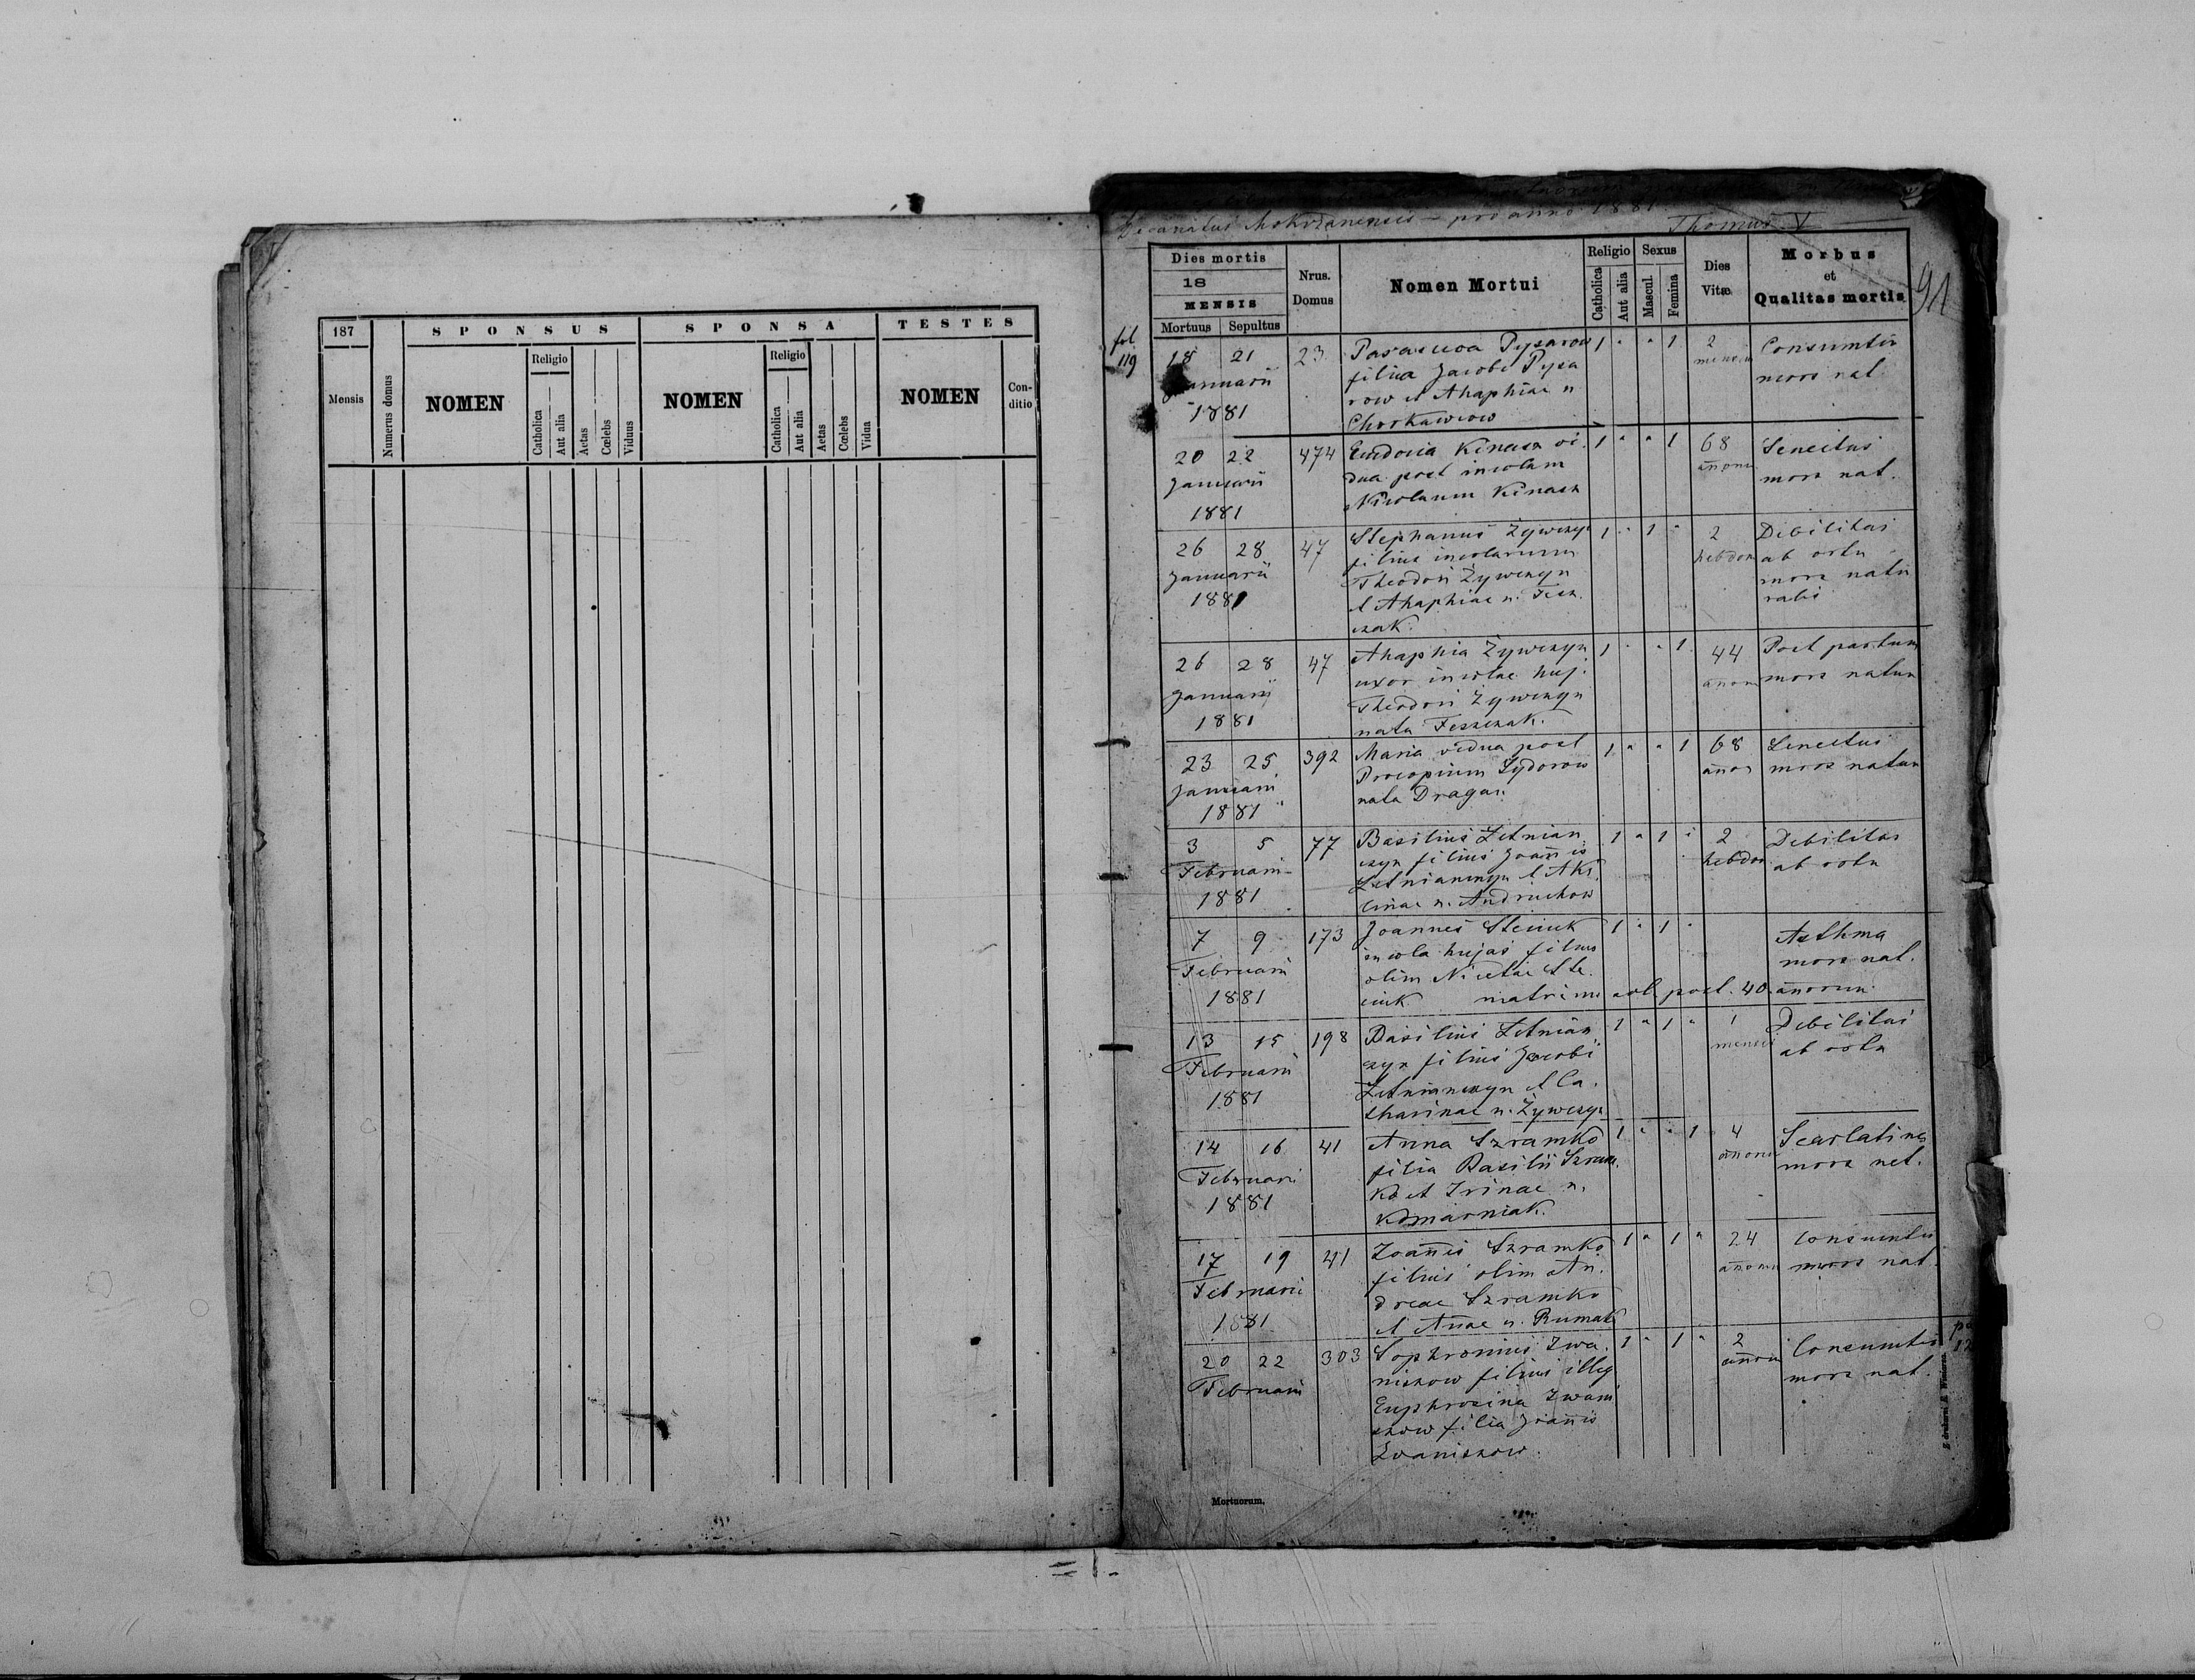 187
SPONSUS
SPONSA
TESTES
Mensis
Numerus domus
NOMEN
Religio
Catholica
Aut alia
Aetas
Cœlebs
Viduus
NOMEN
Religio
Catholica
Aut alia
Aetas
Cœlebs
Vidua
NOMEN
Con-
ditio
Decanatus Mokrzanensis – pro anno 1881
Thomus V
91
Dies mortis
18
MENSIS
Mortuus Sepultus
Nrus.
Domus
Nomen Mortui
Religio
Catholica
Aut alia
Sexus
Mascul.
Femina
Dies
Vitæ
Morbus
et
Qualitas mortis
fol
119
18 21 23 Pysarow 1 " " 1 2 Consumtio
Januarii filia Jacobi Pysa mors nat
1881 row et Ahaphiae n
20 22 474 Eudocia Kinasz vi. 1 " " 1 68 Senectus
Januarii dua post incolam mors nat.
1881 Nicolaum Kinasz
26 28 47 Stephanus Żywczyn 1 " 1 " 2 Debilitas
Januarii filius incolarum hebdom ab ortu
1881 Theodori Żywczyn mors natu
et Ahaphiae n. Fesz ralis
czak.
26 28 47 Ahaphia Żywczyn 1 " " 1 44 Post partum
Januarii uxor incolae huj. mors natur
1881 Theodori Żywczyn
nata Feszczak.
23 25 392 Maria vidua post 1 " " 1 68 Senectus
Januarii Procopium Sydorow annor mors natur
1881 nata Dragan
3 5 77 Basilius Letnian 1 " 1 " 2 Debilitas
Februarii czyn filius Joannis hebdom ab ortu
1881 Letnianczyn et Aku
linae n. Andruchow
7 9 173 Joannes Steciuk 1 " 1 " Asthma
Februarii incola hujas filius mors nat.
1881 olim Nicetae Ste.
ciuk post. 40 annorum
13 15 198 Basilius Letnian 1 " 1 " 1 Debilitas
Februarii czyn filius Jacobi mensis ab ortu
1881 Letnianczyn et Ca.
tharinae n. Żywczyn
14 16 41 Anna Szramko 1 " " 1 4 Scarlatina
Februari filia Basilii Szram. mors nat.
1881 ko et Irinae n.
Komarniak.
17 19 41 Ioannis Szramko 1 " 1 " 24 Consumtio
Februarii filius olim An. mors nat.
1881 dreae Szramko
et Annae n. Rumak
20 22 303 Sophronius Iwa. 1 " 1 " 2 Consumtio
Februarii niszow filius illeg mors nat.
Euphrosina Iwani
szow filia Joannis
Iwaniszow.
Mortuorum.